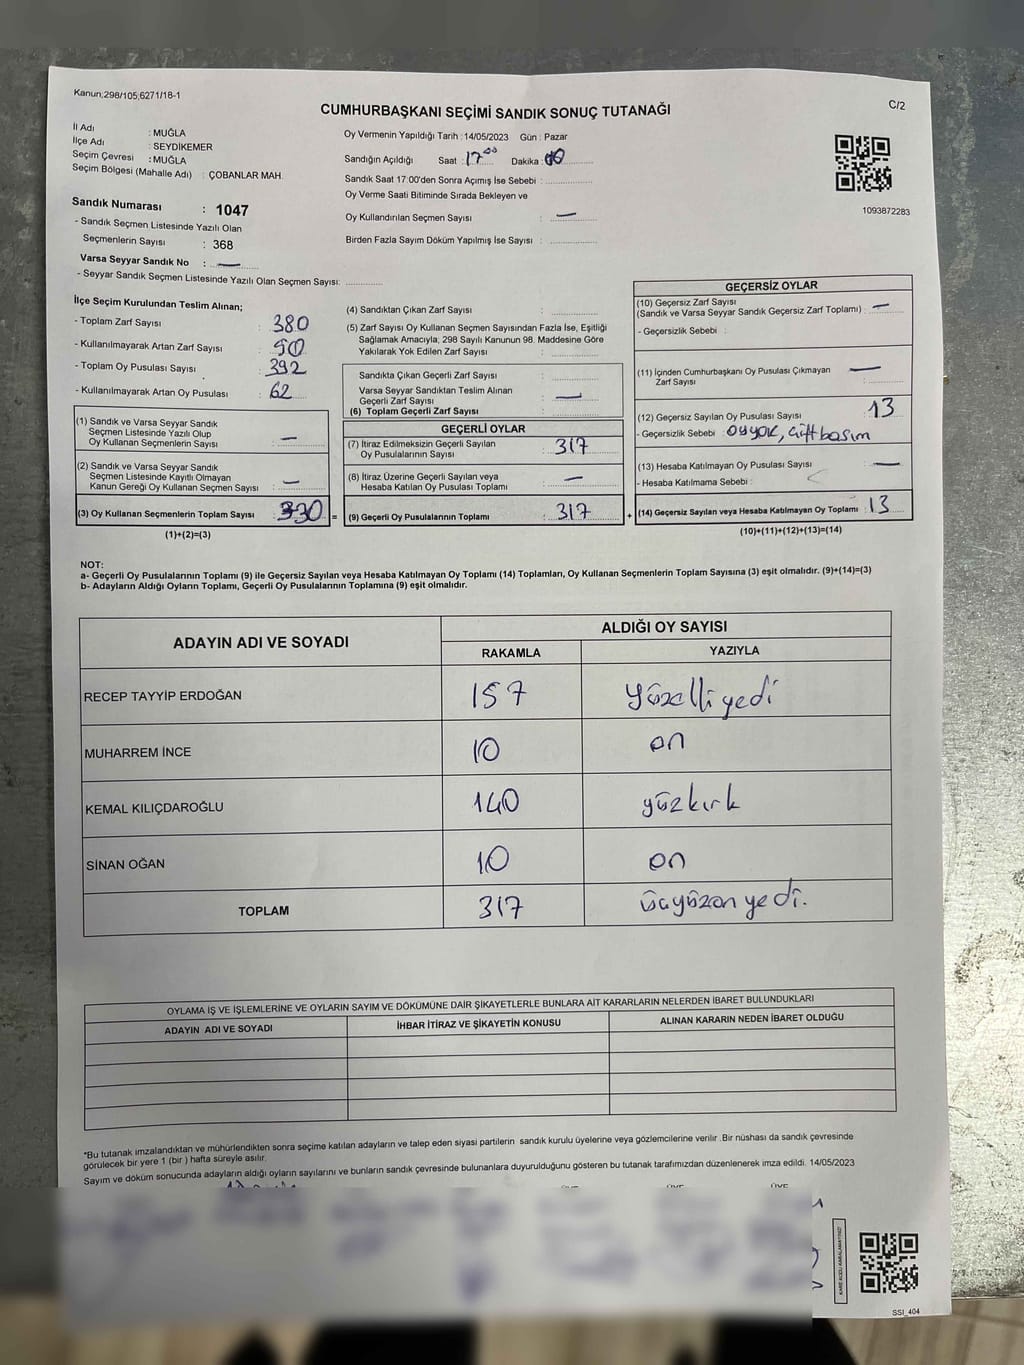 Kanun;298/105;6271/18-1
C/2
CUMHURBAŞKANI SEÇİMİ SANDIK SONUÇ TUTANAĞI
İl Adı : MUĞLA
İlçe Adı : SEYDİKEMER
Seçim Çevresi : MUĞLA
Seçim Bölgesi (Mahalle Adı) : ÇOBANLAR MAH.
Sandık Numarası : 1047
- Sandık Seçmen Listesinde Yazılı Olan
Seçmenlerin Sayısı : 368
Varsa Seyyar Sandık No : —
- Seyyar Sandık Seçmen Listesinde Yazılı Olan Seçmen Sayısı:
Oy Vermenin Yapıldığı Tarih :14/05/2023 Gün : Pazar
Sandığın Açıldığı Saat : 17 00 Dakika : 00
Sandık Saat 17:00'den Sonra Açımış İse Sebebi :
Oy Verme Saati Bitiminde Sırada Bekleyen ve
Oy Kullandırılan Seçmen Sayısı : —
Birden Fazla Sayım Döküm Yapılmış İse Sayısı :
1093872283
İlçe Seçim Kurulundan Teslim Alınan;
- Toplam Zarf Sayısı : 380
- Kullanılmayarak Artan Zarf Sayısı : 50
- Toplam Oy Pusulası Sayısı : 392
- Kullanılmayarak Artan Oy Pusulası : 62
(1) Sandık ve Varsa Seyyar Sandık
Seçmen Listesinde Yazılı Olup
Oy Kullanan Seçmenlerin Sayısı : —
(2) Sandık ve Varsa Seyyar Sandık
Seçmen Listesinde Kayıtlı Olmayan
Kanun Gereği Oy Kullanan Seçmen Sayısı : —
(3) Oy Kullanan Seçmenlerin Toplam Sayısı : 330
(1)+(2)=(3)
=
(4) Sandıktan Çıkan Zarf Sayısı :
(5) Zarf Sayısı Oy Kullanan Seçmen Sayısından Fazla İse, Eşitliği
Sağlamak Amacıyla, 298 Sayılı Kanunun 98. Maddesine Göre
Yakılarak Yok Edilen Zarf Sayısı :
Sandıkta Çıkan Geçerli Zarf Sayısı :
Varsa Seyyar Sandıktan Teslim Alınan
Geçerli Zarf Sayısı : —
(6) Toplam Geçerli Zarf Sayısı :
GEÇERLİ OYLAR
(7) İtiraz Edilmeksizin Geçerli Sayılan
Oy Pusulalarının Sayısı : 317
(8) İtiraz Üzerine Geçerli Sayılan veya
Hesaba Katılan Oy Pusulası Toplamı : —
(9) Geçerli Oy Pusulalarının Toplamı : 317
+
GEÇERSİZ OYLAR
(10) Geçersiz Zarf Sayısı
(Sandık ve Varsa Seyyar Sandık Geçersiz Zarf Toplamı) : —
- Geçersizlik Sebebi :
(11) İçinden Cumhurbaşkanı Oy Pusulası Çıkmayan
Zarf Sayısı : —
(12) Geçersiz Sayılan Oy Pusulası Sayısı : 13
- Geçersizlik Sebebi : oy yok, çift basım
(13) Hesaba Katılmayan Oy Pusulası Sayısı : —
- Hesaba Katılmama Sebebi :
(14) Geçersiz Sayılan veya Hesaba Katılmayan Oy Toplamı : 13
(10)+(11)+(12)+(13)=(14)
NOT:
a- Geçerli Oy Pusulalarının Toplamı (9) ile Geçersiz Sayılan veya Hesaba Katılmayan Oy Toplamı (14) Toplamları, Oy Kullanan Seçmenlerin Toplam Sayısına (3) eşit olmalıdır. (9)+(14)=(3)
b- Adayların Aldığı Oyların Toplamı, Geçerli Oy Pusulalarının Toplamına (9) eşit olmalıdır.
ADAYIN ADI VE SOYADI
ALDIĞI OY SAYISI
RAKAMLA YAZIYLA
RECEP TAYYİP ERDOĞAN 157 yüzelliyedi
MUHARREM İNCE 10 on
KEMAL KILIÇDAROĞLU 140 yüzkırk
SİNAN OĞAN 10 on
TOPLAM 317 üçyüzonyedi.
OYLAMA İŞ VE İŞLEMLERİNE VE OYLARIN SAYIM VE DÖKÜMÜNE DAİR ŞİKAYETLERLE BUNLARA AİT KARARLARIN NELERDEN İBARET BULUNDUKLARI
ADAYIN ADI VE SOYADI İHBAR İTİRAZ VE ŞİKAYETİN KONUSU ALINAN KARARIN NEDEN İBARET OLDUĞU
*Bu tutanak imzalandıktan ve mühürlendikten sonra seçime katılan adayların ve talep eden siyasi partilerin sandık kurulu üyelerine veya gözlemcilerine verilir .Bir nüshası da sandık çevresinde
görülecek bir yere 1 (bir ) hafta süreyle asılır.
Sayım ve döküm sonucunda adayların aldığı oyların sayılarını ve bunların sandık çevresinde bulunanlara duyurulduğunu gösteren bu tutanak tarafımızdan düzenlenerek imza edildi. 14/05/2023
ÜYE ÜYE ÜYE
SSI_404